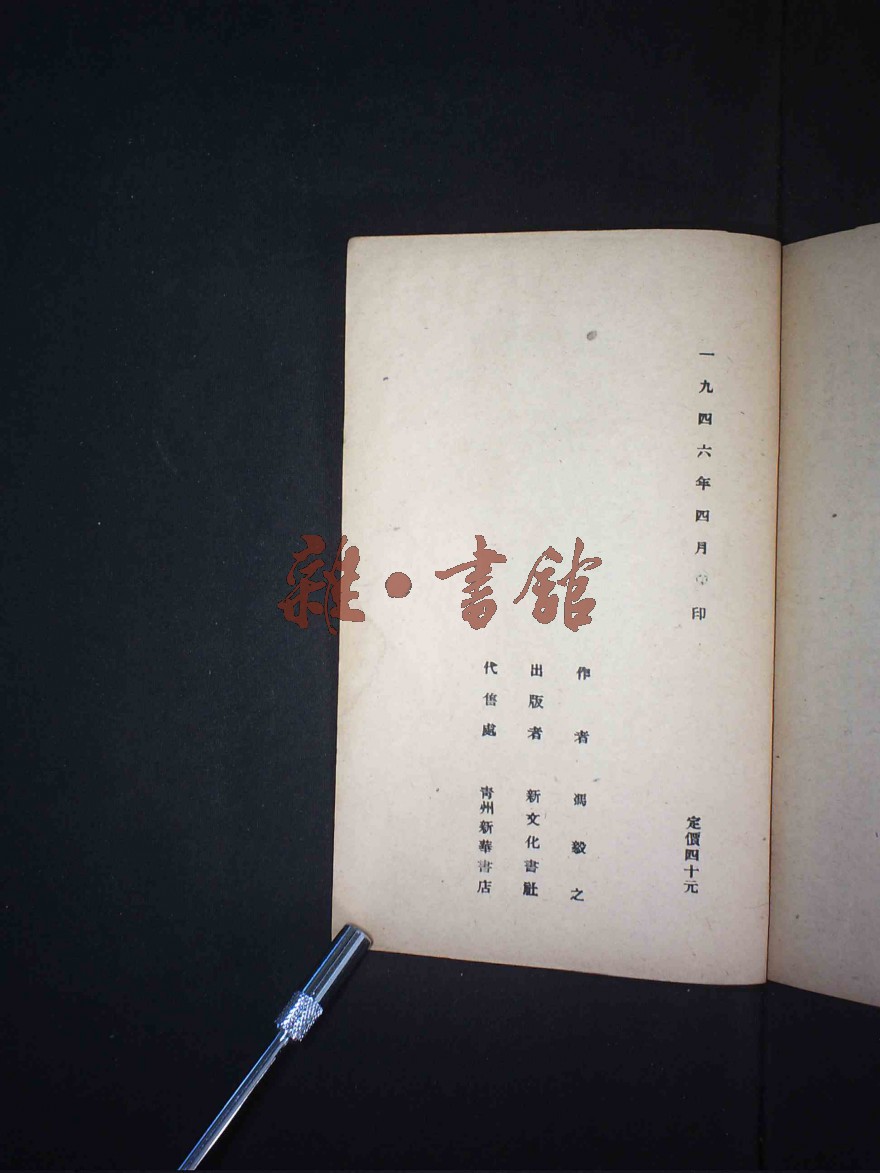 一九四六年四月 印
定價四十元
作者 馮毅之
出版者 新文化書社
代售處 青州新華書店
雜·書館